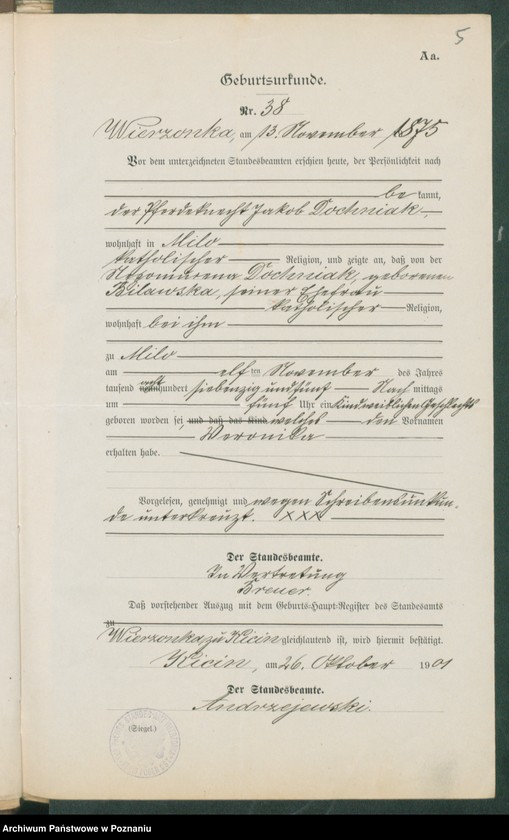 5
Aa.
Geburtsurkunde.
Nr. 38
Wierzonka, am 13. November 1875
Vor dem unterzeichneten Standesbeamten erschien heute, der Persönlichkeit nach
be kannt,
der Pferdeknecht Jakob Dochniak,
wohnhaft in Milo
katholischer Religion, und zeigte an, daß von der
Dochniak, geborenen
Bilawska, seiner Ehefrau
katholischer Religion,
wohnhaft bei ihm
zu Milo
am elf ten November des Jahres
tausend acht hundert siebenzig und fünf Nach mittags
um fünf Uhr ein Kind weiblichen Geschlechts
geboren worden sei, und daß das Kind welches den Vornamen
Veronika
erhalten habe.
Vorgelesen, genehmigt und wegen Schreibensunkun-
de unterkreuzt. XXX
Der Standesbeamte.
In Vertretung
Breuer.
Daß vorstehender Auszug mit dem Geburts-Haupt-Register des Standesamts
zu
Wierzonka zu Kicin gleichlautend ist, wird hiermit bestätigt.
Kicin, am 26. Oktober 1901
Der Standesbeamte.
Andrzejewski.
(Siegel.)
Archiwum Państwowe w Poznaniu
www.szukajwarchiwach.pl